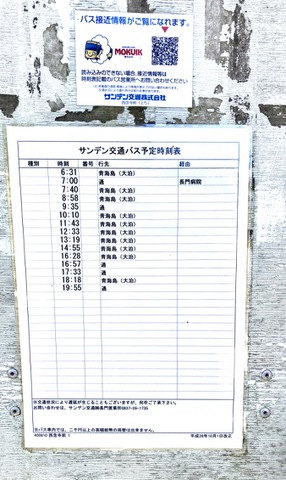 バス接近情報がご覧になれます。
MOKUIK
読み込みのできない場合、接近情報等は
時刻表記載のバス営業所へお問い合わせください
サンデン交通株式会社
西念寺前（2-1）
サンデン交通バス予定時刻表
種別 時刻 番号 行先 経由
6:31 青海島（大泊）
7:00 通 長門病院
7:40 青海島（大泊）
8:58 青海島（大泊）
9:35 通
10:10 青海島（大泊）
11:43 青海島（大泊）
12:33 青海島（大泊）
13:19 青海島（大泊）
14:55 青海島（大泊）
16:28 青海島（大泊）
16:57 通
17:33 通
18:18 青海島（大泊）
19:55 通
※交通状況により遅延が生じることもございますが、何卒ご了承下さい。
お問い合わせは、サンデン交通㈱長門営業所0837-26-1735
400010 西念寺前 1 平成28年10月1日改正
※バス車内では、二千円以上の高額紙幣の両替は出来ません。